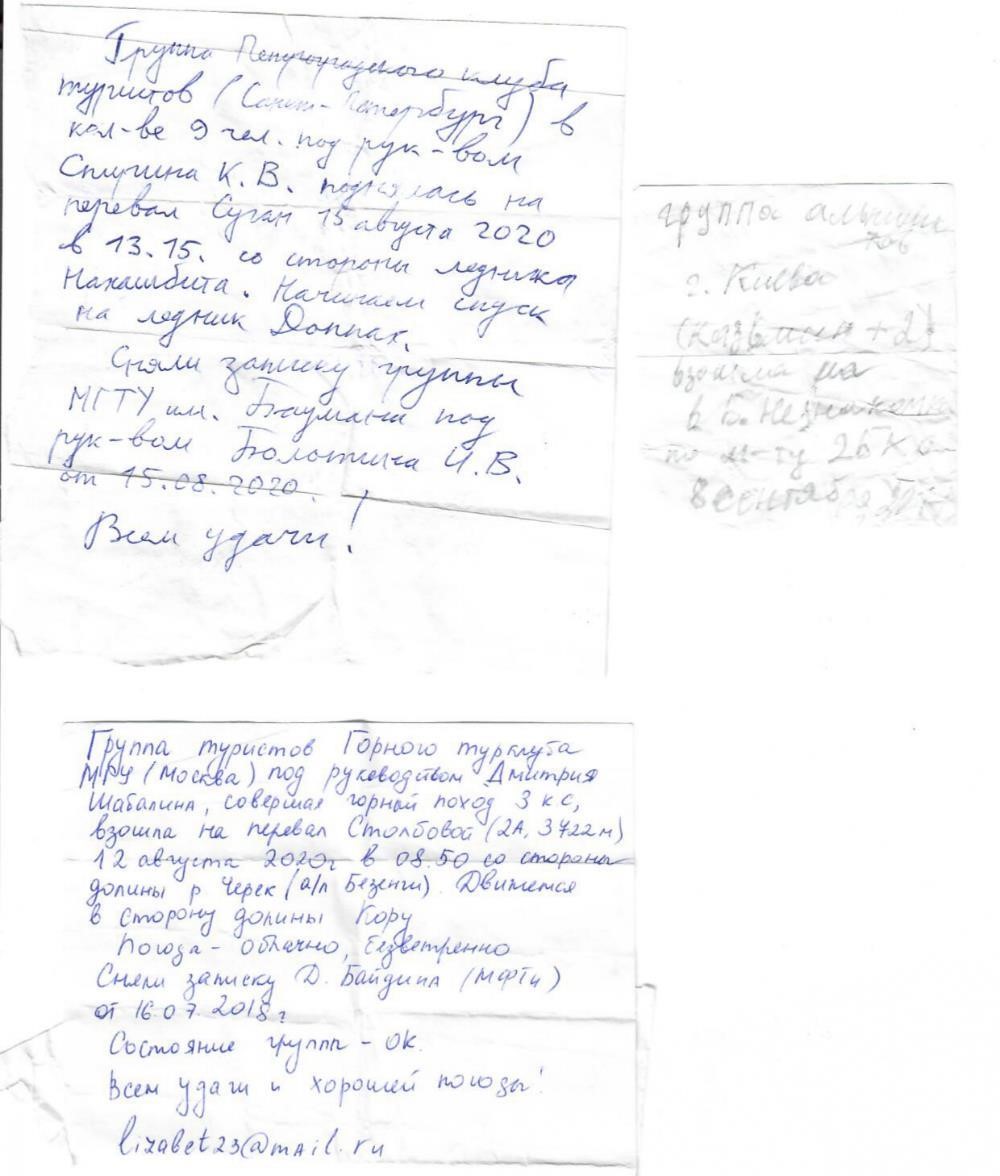 Группа Петроградского клуба
туристов (Санкт-Петербург) в
кол-ве 9 чел. под рук-вом
К. В. поднялась на
перевал Суган 15 августа 2020
в 13.15. со стороны ледника
Нахашбита. Начинаем спуск
на ледник Доппах.
Сняли записку группы
МГТУ им. Баумана под
рук-вом Болотина И. В.
от 15.08.2020.
Всем удачи!
группа альпинис
тов
г. Киева
+ 2)
взошла на
в
по м-ту 2Б К
8 сентября
Группа туристов Горного турклуба
МГУ (Москва) под руководством Дмитрия
Шабалина, совершая горный поход 3 к с,
взошла на перевал Столбовой (2А, 3422м)
12 августа 2020г в 08.50 со стороны
долины р. Черек (а/л Безенги). Движется
в сторону долины Кору
Погода - облачно, безветренно
Сняли записку Д. Байдина (МФТИ)
от 16.07.2018г
Состояние групп - ОК.
Всем удачи и хорошей погоды!
lizabet23@mail.ru